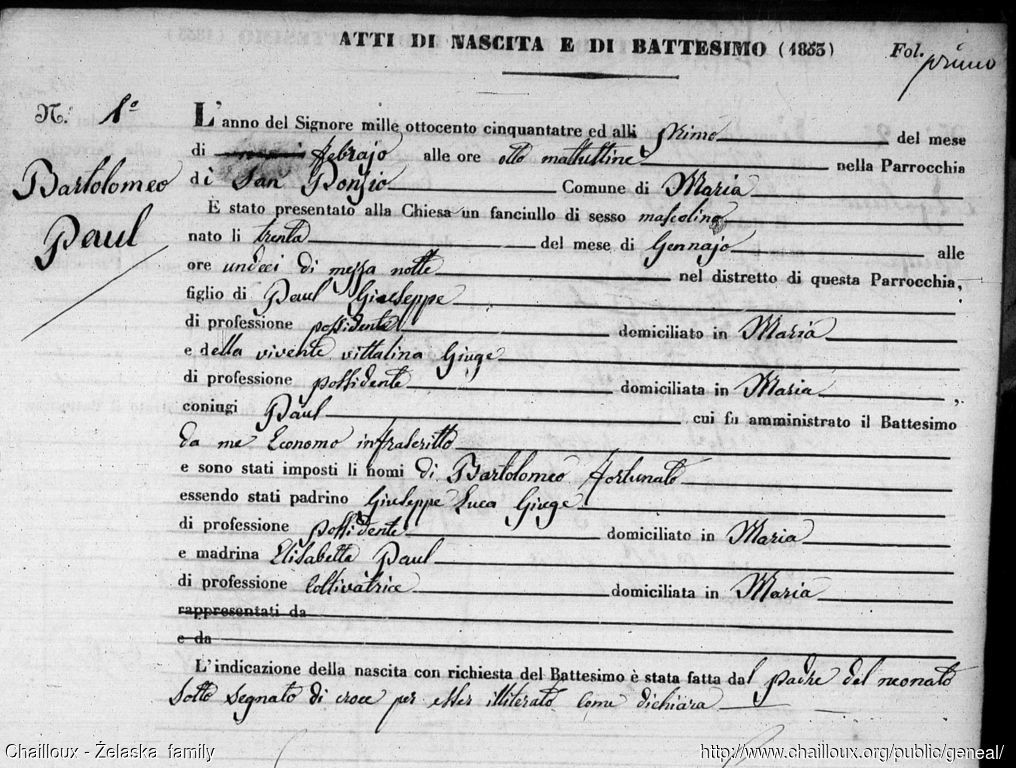 ATTI DI NASCITA E DI BATTESIMO (1853) Fol. primo
N. 1º
Bartolomeo
Paul
L'anno del Signore mille ottocento cinquantatre ed alli primo del mese
di febrajo alle ore otto mattuttine nella Parrocchia
di San Ponzio Comune di Maria
È stato presentato alla Chiesa un fanciullo di sesso mascolino
nato li trenta del mese di Gennajo alle
ore undeci di mezza notte nel distretto di questa Parrocchia,
figlio di Paul Giuseppe
di professione possidente domiciliato in Maria
e della vivente vittalina Giuge
di professione possidente domiciliata in Maria,
coniugi Paul cui fu amministrato il Battesimo
da me Economo infrascritto
e sono stati imposti li nomi di Bartolomeo fortunato
essendo stati padrino Giuseppe Luca Giuge
di professione possidente domiciliato in Maria
e madrina Elisabetta Paul
di professione Coltivatrice domiciliata in Maria
rappresentati da
e da
L'indicazione della nascita con richiesta del Battesimo è stata fatta dal padre del neonato
sotto segnato di croce per esser illiterato come dichiara
Chailloux - Želaska family http://www.chailloux.org/public/geneal/